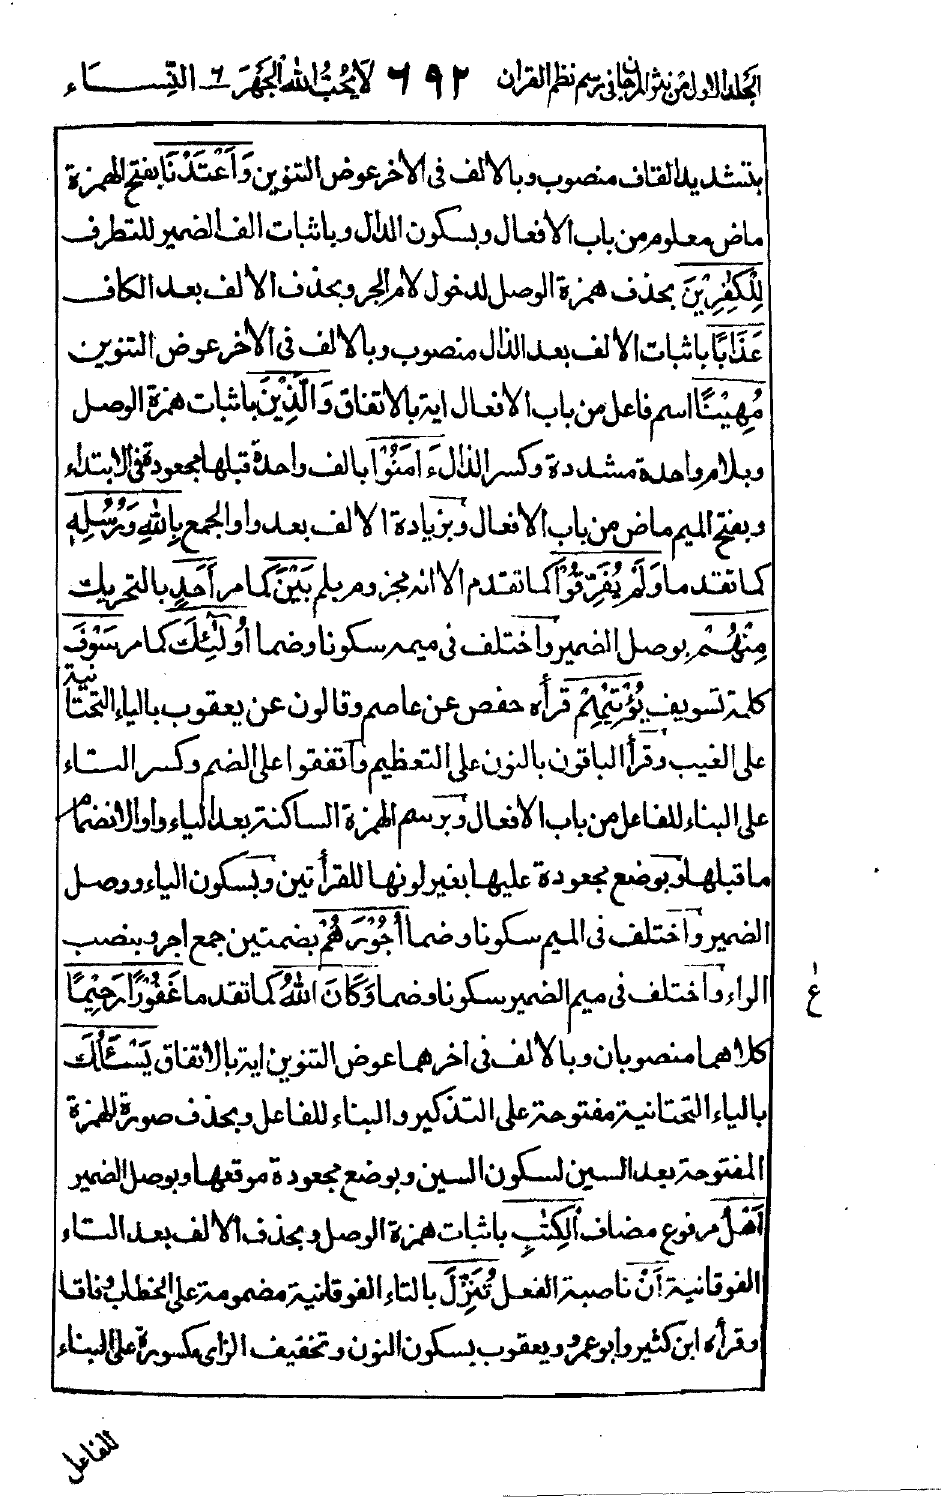 الجلد الاول من نثر المرجان فى رسم نظم القران ٦٩٢ لَا يُحِبُّ اللهُ الْجَهْرَ ٦ النِّسَاء
بتشديد القاف منصوب وبالالف فى الاخر عوض التنوين وَاَعْتَدْنَا بفتح الهمزة
ماض معلوم من باب الافعال وبسكون الدال وباثبات الف الضمير للتطرف
لِلْكٰفِرِيْنَ بحذف همزة الوصل لدخول لام الجر وبحذف الالف بعد الكاف
عَذَابًا باثبات الالف بعد الذال منصوب وبالالف فى الاخر عوض التنوين
مُهِيْنًا اسم فاعل من باب الافعال اية بالاتفاق وَالَّذِيْنَ باثبات همزة الوصل
وبلام واحدة مشددة وكسر الذال ءَامَنُوْا بالف واحدة قبلها مجعودة فى الابتداء
وبفتح الميم ماض من باب الافعال وبزيادة الالف بعد واو الجمع بِاللهِ وَرُسُلِهٖ
كما تقدما وَلَمْ يُفَرِّقُوْا كما تقدم الا انه مجزوم بلم بَيْنَ كما مر اَحَدٍ بالتحريك
مِنْهُمْ بوصل الضمير واختلف فى ميمه سكونا وضما اُولٰٓئِكَ كما مر سَوْفَ
كلمة تسويف يُؤْتِيْهِمْ قرأه حفص عن عاصم وقالون عن يعقوب بالياء التحتانية
على الغيب وقرأ الباقون بالنون على التعظيم واتفقوا على الضم وكسر التاء
على البناء للفاعل من باب الافعال وبرسم الهمزة الساكنة بعد الياء واوا لانضمام
ما قبلها وبوضع مجعودة عليها بغير لونها للقرأتين وبسكون الياء ووصل
الضمير واختلف فى الميم سكونا وضما اُجُوْرَهُمْ بضمتين جمع اجر وبنصب
الراء واختلف فى ميم الضمير سكونا وضما وَكَانَ اللهُ كما تقدما غَفُوْرًا رَحِيْمًا
ع
كلاهما منصوبان وبالالف فى اخرهما عوض التنوين اية بالاتفاق يَسْـَٔلُكَ
بالياء التحتانية مفتوحة على التذكير والبناء للفاعل وبحذف صورة الهمزة
المفتوحة بعد السين لسكون السين وبوضع مجعودة موقعها وبوصل الضمير
اَهْلُ مرفوع مضاف اَلْكِتٰبِ باثبات همزة الوصل وبحذف الالف بعد التاء
الفوقانية اَنْ ناصبة الفعل تُنَزِّلَ بالتاء الفوقانية مضمومة على الخطاب وفاقا
وقرأه ابن كثير وابو عمرو ويعقوب بسكون النون وتخفيف الزاى مكسورة على البناء
للفاعل